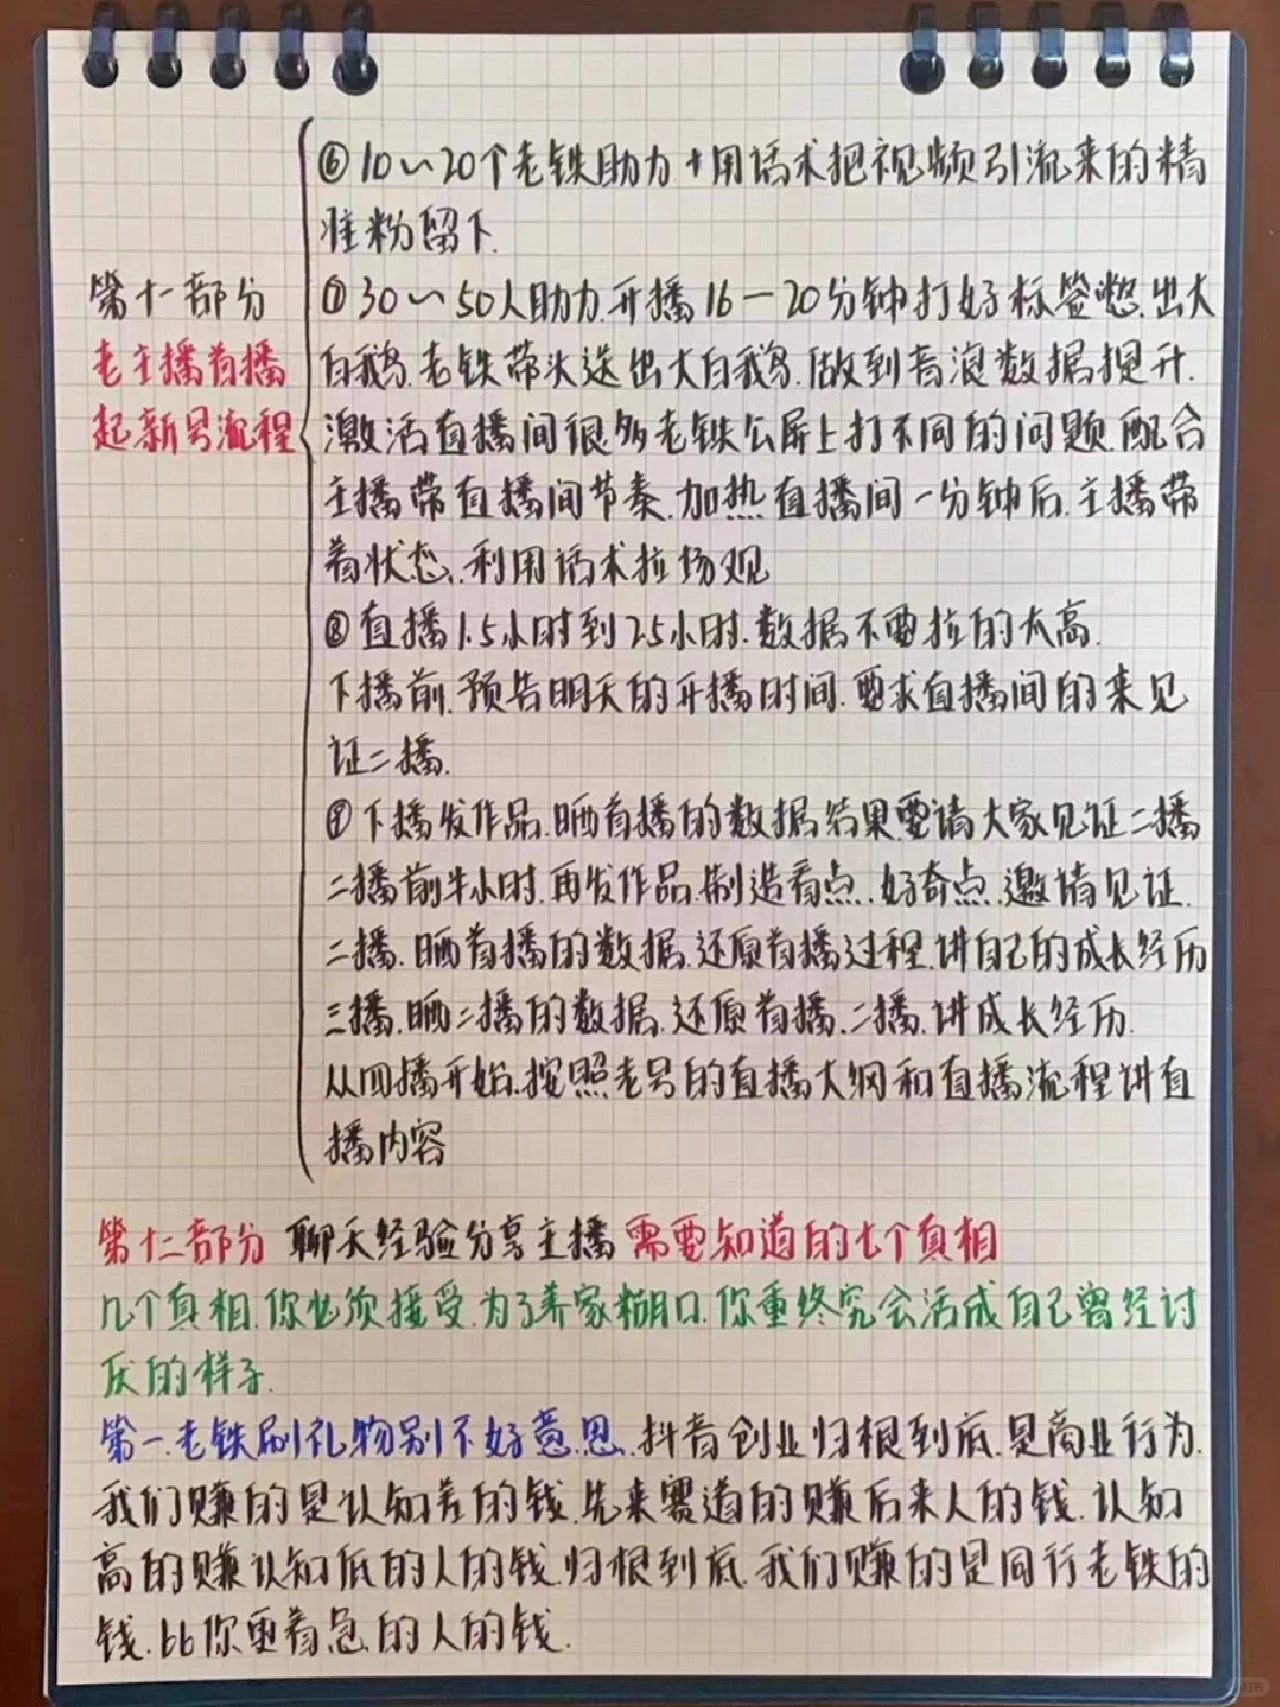 第十一部分
老主播首播
起新号流程
⑥10~20个老铁助力+用话术把视频引流来的精
准粉留下.
⑦30~50人助力.开播16—20分钟打好标签憋.出大
白鹅.老铁带头送出大白鹅.做到音浪数据提升.
激活直播间很多老铁公屏上打不同的问题.配合
主播带直播间节奏.加热直播间一分钟后.主播带
着状态.利用话术拉场观
⑧直播1.5小时到2.5小时.数据不要拉的太高.
下播前.预告明天的开播时间.要求直播间的来见
证二播.
⑨下播发作品.晒首播的数据结果要请大家见证二播
二播前半小时.再发作品.制造看点.好奇点.邀请见证.
二播.晒首播的数据.还原首播过程.讲自己的成长经历
三播.晒二播的数据.还原首播.二播.讲成长经历.
从四播开始.按照老号的直播大纲和直播流程讲直
播内容
第十二部分 聊天经验分享主播需要知道的七个真相
几个真相.你必须接受.为了养家糊口.你重终究会活成自己曾经讨
厌的样子.
第一.老铁刷礼物别不好意思.抖音创业归根到底.是商业行为.
我们赚的是认知差的钱.先来赛道的赚后来人的钱.认知
高的赚认知底的人的钱.归根到底.我们赚的是同行老铁的
钱.比你更着急的人的钱.